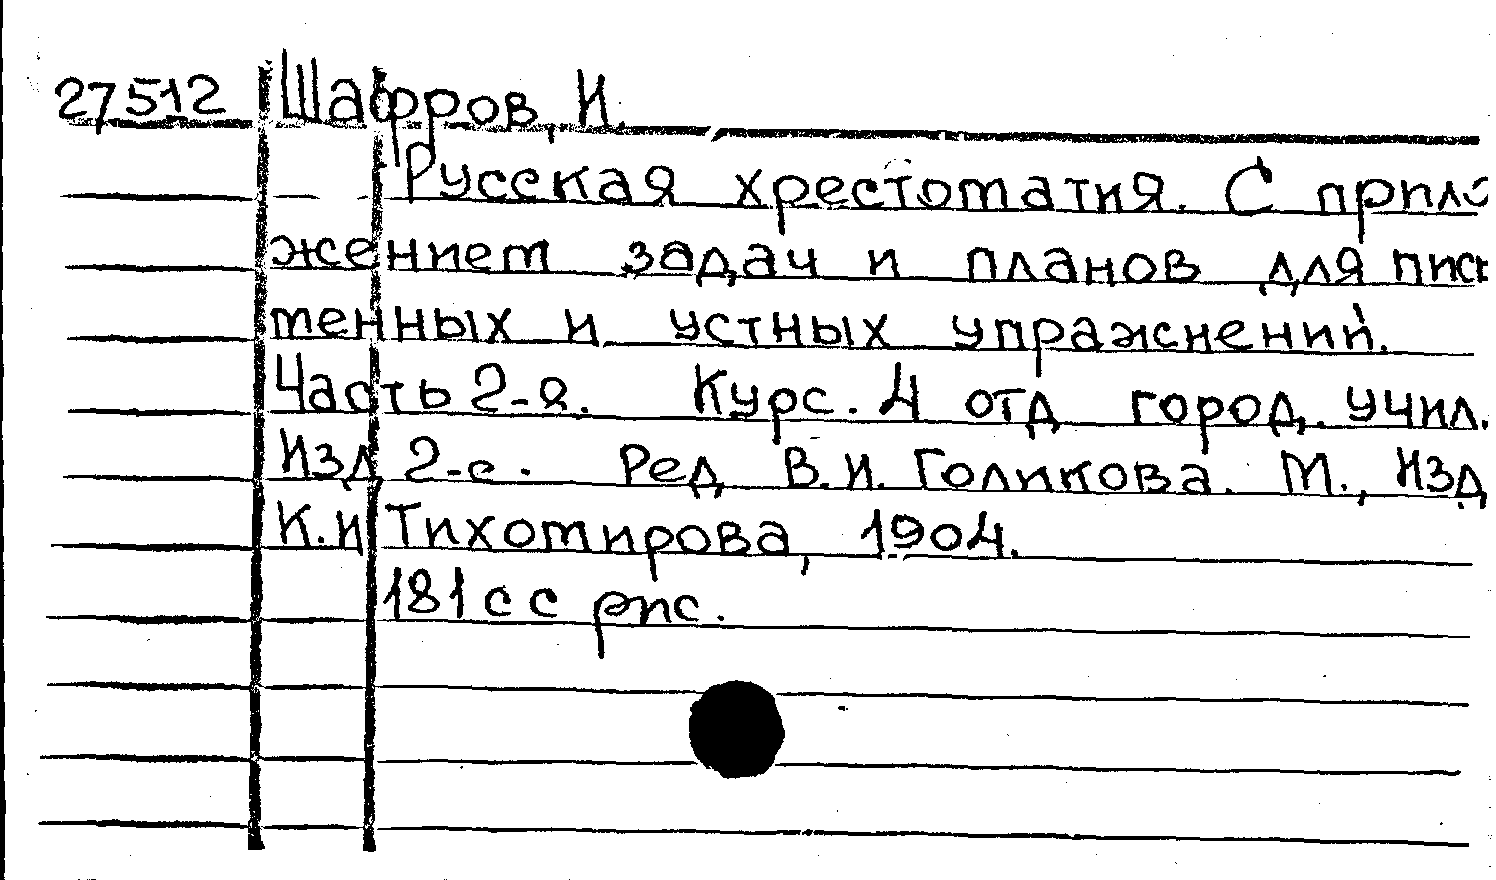 27512 Шафров, И.
Русская хрестоматия. С прило
жением задач и планов для пись
менных и устных упражнений.
Часть 2-я. Курс. 4 отд город. учил.
Изд 2-е. Ред В.И. Голикова. М., Изд.
К.И Тихомирова, 1904.
181 с с рис.